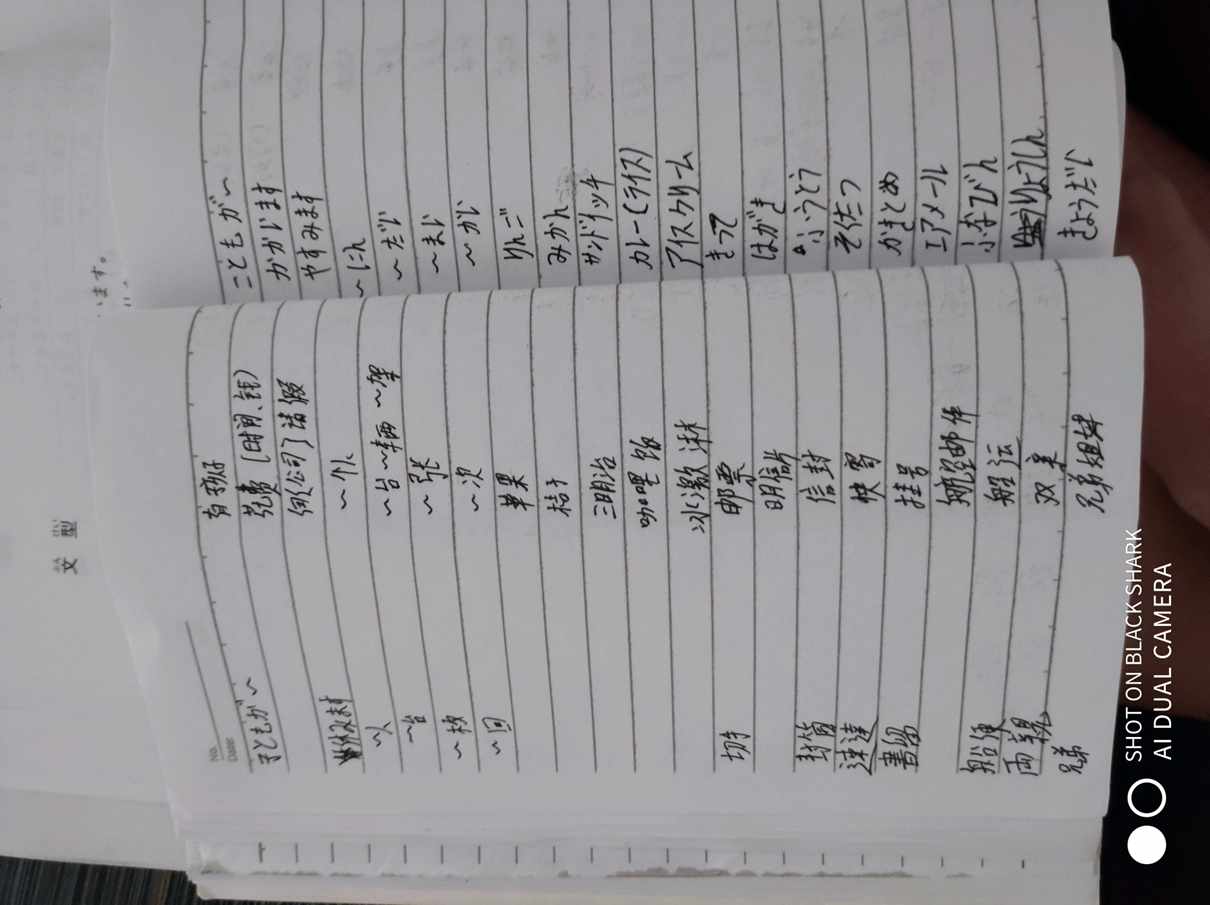 います。
ぶん けい
文 型
No.
Date
子どもが～ 有孩子 こどもが～
花费(时间、钱) かかります
休みます 向公司请假 やすみます
～人 ～个人 ～にん
～台 ～台～辆～架 ～だい
～枚 ～张 ～まい
～回 ～次 ～かい
苹果 りんご
桔子 みかん
三明治 サンドイッチ
咖喱饭 カレー(ライス)
冰激淋 アイスクリーム
切手 邮票 きって
明信片 はがき
封筒 信封 ふうとう
速達 快寄 そくたつ
書留 挂号 かきとめ
航空邮件 エアメール
船便 船运 ふなびん
両親 双亲 りょうしん
兄弟 兄弟姐妹 きょうだい
SHOT ON BLACK SHARK
AI DUAL CAMERA